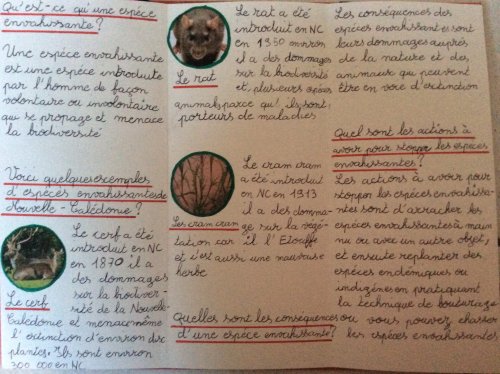 Qu'est-ce qu'une espèce
envahissante?
Une espèce envahissante
est une espèce introduite
par l'homme de façon
volontaire ou involontaire
qui se propage et menace
la biodiversité
Voici quelques exemples
d'espèces envahissantes de
Nouvelle-Calédonie?
Le cerf a été
introduit en NC
en 1870 il a
des dommages
sur la biodiver-
Le cerf
sité de la Nouvelle-
Calédonie et menace même
l'extinction d'environ dix
plantes. Ils sont environ
300 000 en NC
Le rat a été
introduit en NC
en 1350 environ
il a des dommages
Le rat
sur la biodiversité
et, plusieurs espèces
animals parce qu'ils sont
porteurs de maladies
Le cram cram
a été introduit
en NC en 1913
il a des domma-
Les cram cram
ge sur la végé-
tation car il l'
et c'est aussi une mauvaise
herbe
Quelles sont les conséquences
d'une espèce envahissante?
Les conséquences des
espèces envahissantes sont
leurs dommages auprès
de la nature et des
animaux qui peuvent
être en voie d'extinction
Quel sont les actions à
avoir pour stopper les espèces
envahissantes?
Les actions à avoir pour
stopper les espèces envahissa-
ntes sont d'arracher les
espèces envahissantes à main
nu ou avec un autre objet,
et ensuite replanter des
espèces endémiques ou
indigènes en pratiquant
la technique de bouturage
ou vous pouvez chasser
les espèces envahissantes